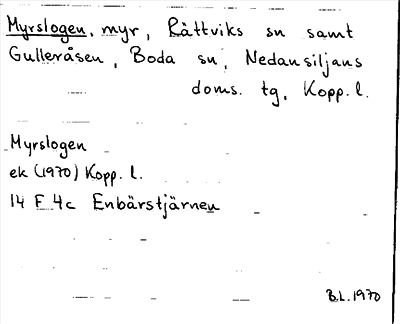 Myrslogen, myr, Rättviks sn samt
Gulleråsen, Boda sn, Nedansiljans
doms. tg, Kopp. l.
Myrslogen
ek (1970) Kopp. l.
14 F 4c Enbärstjärnen
B.L. 1970